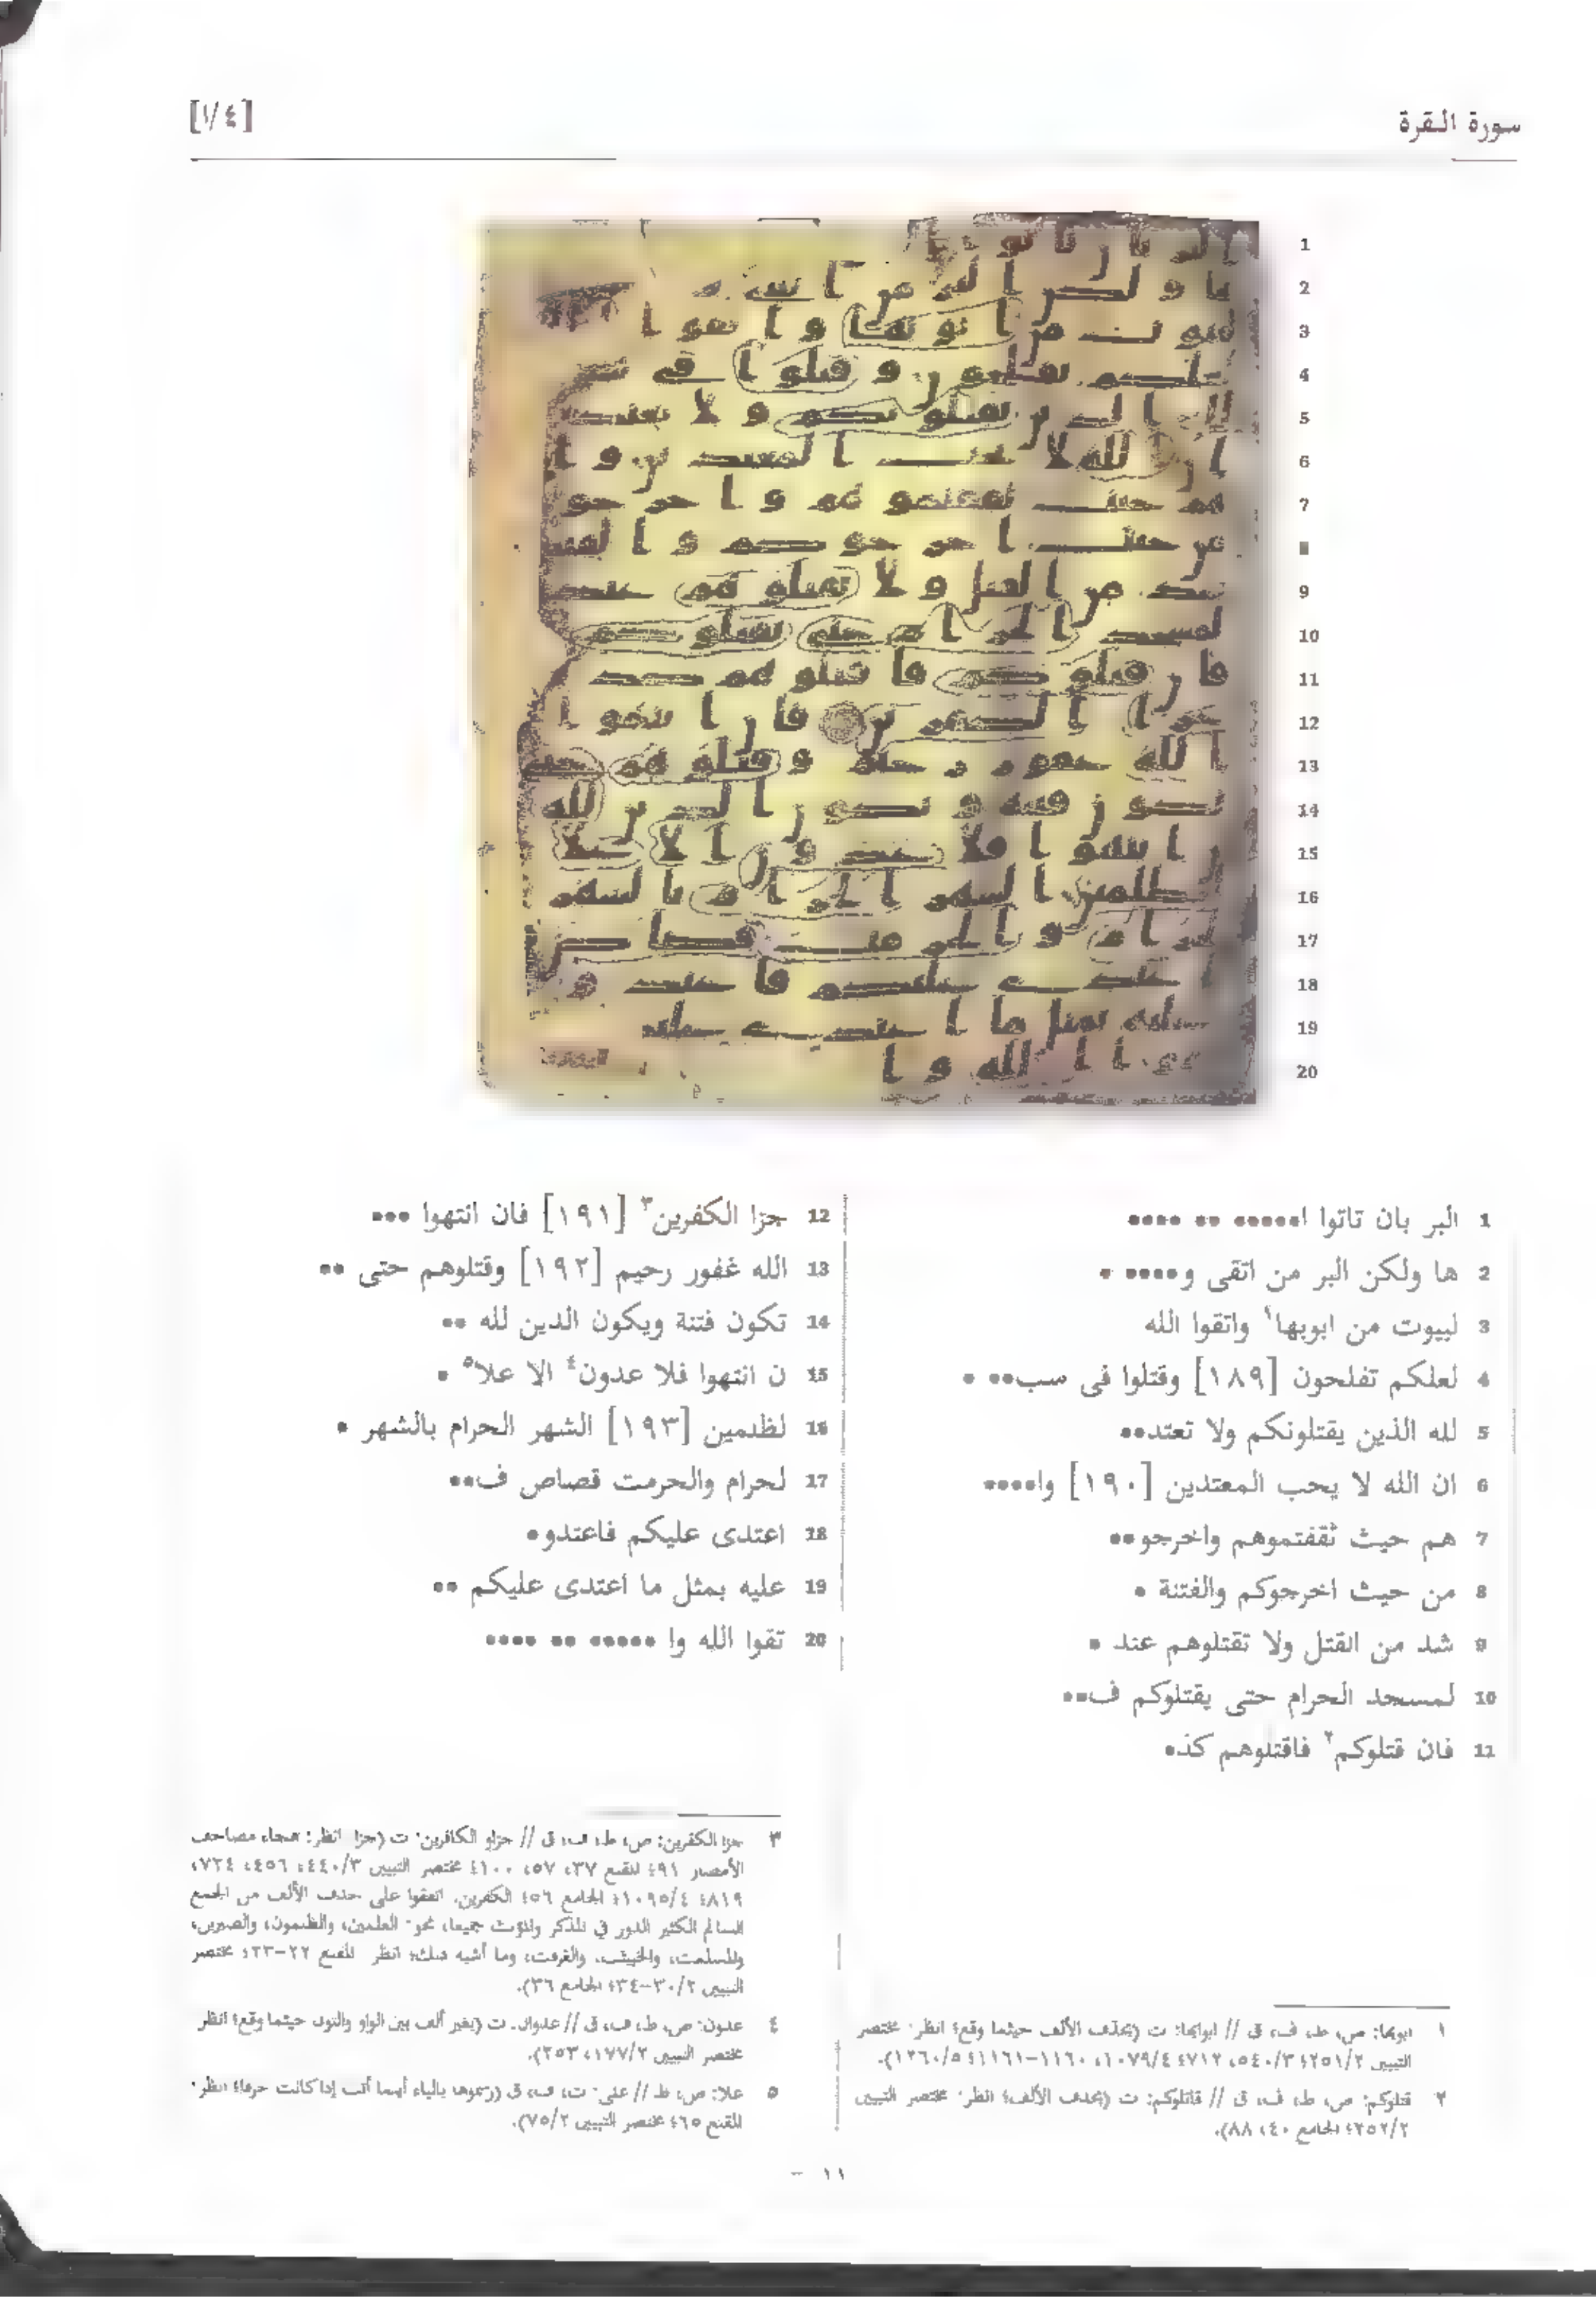 سورة البقرة
[١/٤]
1 البر بان تاتوا ا••••• •• ••••
2 ها ولكن البر من اتقى و•••• •
3 لبيوت من ابوبها١ واتقوا الله
4 لعلكم تفلحون [١٨٩] وقتلوا فى سب•• •
5 لله الذين يقتلونكم ولا تعتد••
6 ان الله لا يحب المعتدين [١٩٠] وا••••
7 هم حيث ثقفتموهم واخرجو••
8 من حيث اخرجوكم والفتنة •
9 شد من القتل ولا تقتلوهم عند •
10 لمسجد الحرام حتى يقتلوكم ف••
11 فان قتلوكم٢ فاقتلوهم كذ•
12 جزا الكفرين٣ [١٩١] فان انتهوا •••
13 الله غفور رحيم [١٩٢] وقتلوهم حتى ••
14 تكون فتنة ويكون الدين لله ••
15 ن انتهوا فلا عدون٤ الا علا٥ •
16 لظلمين [١٩٣] الشهر الحرام بالشهر •
17 لحرام والحرمت قصاص ف••
18 اعتدى عليكم فاعتدو•
19 عليه بمثل ما اعتدى عليكم ••
20 تقوا الله وا ••••• •• ••••
١ ابوبها: ص، ط، ف، ق // ابوابها: ت (بحذف الألف حيثما وقع؛ انظر: مختصر
التبيين ٢٥١/٢؛ ٥٤٠/٣، ٧١٢؛ ١٠٧٩/٤، ١١٦٠-١١٦١؛ ١٢٦٠/٥).
٢ قتلوكم: ص، ط، ف، ق // قاتلوكم: ت (بحذف الألف؛ انظر: مختصر التبيين
٢٥٢/٢؛ الجامع ٤٠، ٨٨).
٣ جزا الكفرين: ص، ط، ف، ق // جزاو الكافرين: ت (جزا انظر: هجاء مصاحف
الأمصار ٩١؛ المقنع ٣٧، ٥٧، ١٠٠؛ مختصر التبيين ٤٤٠/٣، ٤٥٦، ٧٣٤،
٨١٩؛ ١٠٩٥/٤؛ الجامع ٥٦؛ الكفرين. اتفقوا على حذف الألف من الجمع
السالم الكثير الدور في المذكر والمؤنث جميعا، نحو: العلمين، والظلمون، والصبرين،
والمسلمت، والخبيثت، والغرفت، وما أشبه ذلك؛ انظر المقنع ٢٢-٢٣؛ مختصر
التبيين ٣٠/٢-٣٤؛ الجامع ٣٦).
٤ عدون: ص، ط، ف، ق // عدوان. ت (بغير ألف بين الواو والنون حيثما وقع؛ انظر
مختصر التبيين ١٧٧/٢، ٢٥٣).
٥ علا: ص، ط // على: ت، ف، ق (رسموها بالياء أينما أتت إذا كانت حرفا؛ انظر:
المقنع ٦٥؛ مختصر التبيين ٧٥/٢).
١١